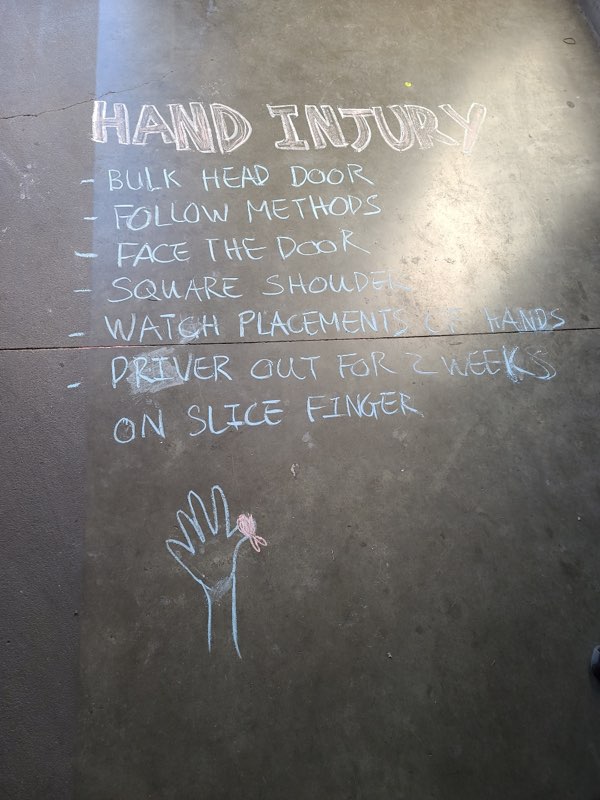 HAND INJURY
- BULK HEAD DOOR
- FOLLOW METHODS
- FACE THE DOOR
- SQUARE SHOULDER
- WATCH PLACEMENTS OF HANDS
- DRIVER OUT FOR 2 WEEKS
ON SLICE FINGER